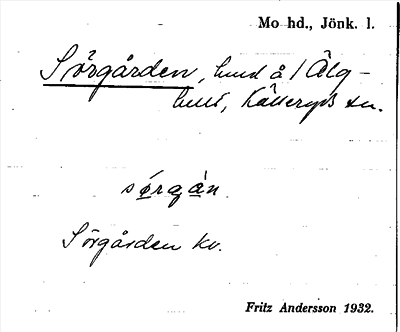 Mo hd., Jönk. l.
Sörgården, hmd å 1 Älg-
hult, Källeryds sn.
sörgån
Sörgården kv.
Fritz Andersson 1932.